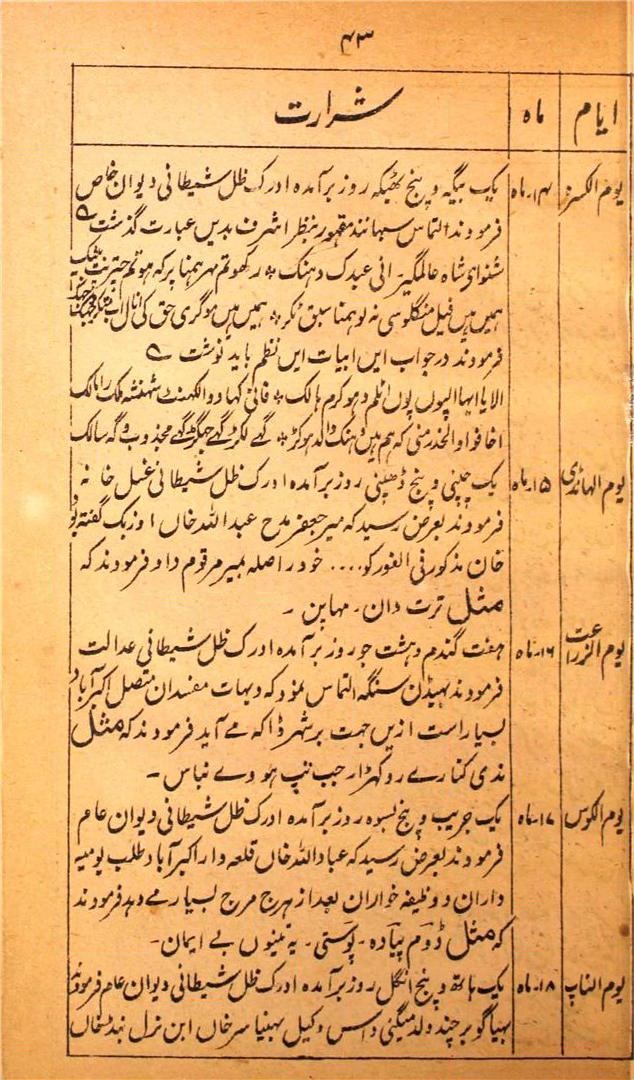 ۴۳
ایام ماہ شرارت
یوم الکسرہ ۱۴۔ماہ یک بیگہ و پنج بھیگہ روز برآمدہ ادرک ظل شیطانی دیوان خاص
فرمودند التماس سبہانند مقہور بنظر اشرف بدیں عبارت گذشت ے
شنوای شاہ عالمگیر انی عبدک دہنک ؞ رکھو تم مہر ہمنا پر کہ ہو تم چترنت
ہمیں ہیں فیل منگلوسی نہ بوہمنا سبق ؞ ہمیں ہیں موگری حق کی
فرمودند در جواب ایں ابیات ایں نظم باید نوشت ے
الا یا ایہا پوں اتلم دہو کرم ہالک ؞ فانی کہادو الکہنٹ شہنشہ ملک را مالک
اخافوا و الحذر منی کہ ہم ہیں دہنک ؞ گہے لکڑ گہے جھگڑ گہے مجذوب و گہ سالک
یوم الہانڈی ۱۵۔ماہ یک چپنی و پنج ڈھپنی روز برآمدہ ادرک ظل شیطانی غسل خانہ
فرمودند بعرض رسید کہ میر جعفر مدح عبد اللہ خاں اوزبک گفتہ بود
خان مذکور فی الفور کو.... خود را صلہ بمیر مرقوم داد فرمودند کہ
مثل ترت دان۔ مہا پن ۔
یوم الزراعت ۱۶۔ماہ ہفت گندم و ہشت جو روز برآمدہ ادرک ظل شیطانی عدالت
فرمودند بہیڈن سنگہ التماس نمود کہ دیہات مفسدان متصل اکبرآباد
بسیار است ازیں جہت بر شہر ڈاکہ مے آید فرمودند کہ مثل
ندی کنارے روکھڑا رجب تپ ہووے نباس ۔
یوم الکوس ۱۷۔ماہ یک جریب و پنج بسوہ روز برآمدہ ادرک ظل شیطانی دیوان عام
فرمودند بعرض رسید کہ عباد اللہ خاں قلعہ دار اکبرآباد طلب یومیہ
داران و وظیفہ خواران بعد از ہرج مرج بسیار مے دہد فرمودند
کہ مثل ڈوم پیادہ۔ پوستی۔ یہ تینوں بے ایمان۔
یوم الناپ ۱۸۔ماہ یک ہاتھ و پنج انگل روز برآمدہ ادرک ظل شیطانی دیوان عام فرمودند
بہیا گوبر چند ولد مینگنی داس وکیل بہنیا سرخاں ابن نزل